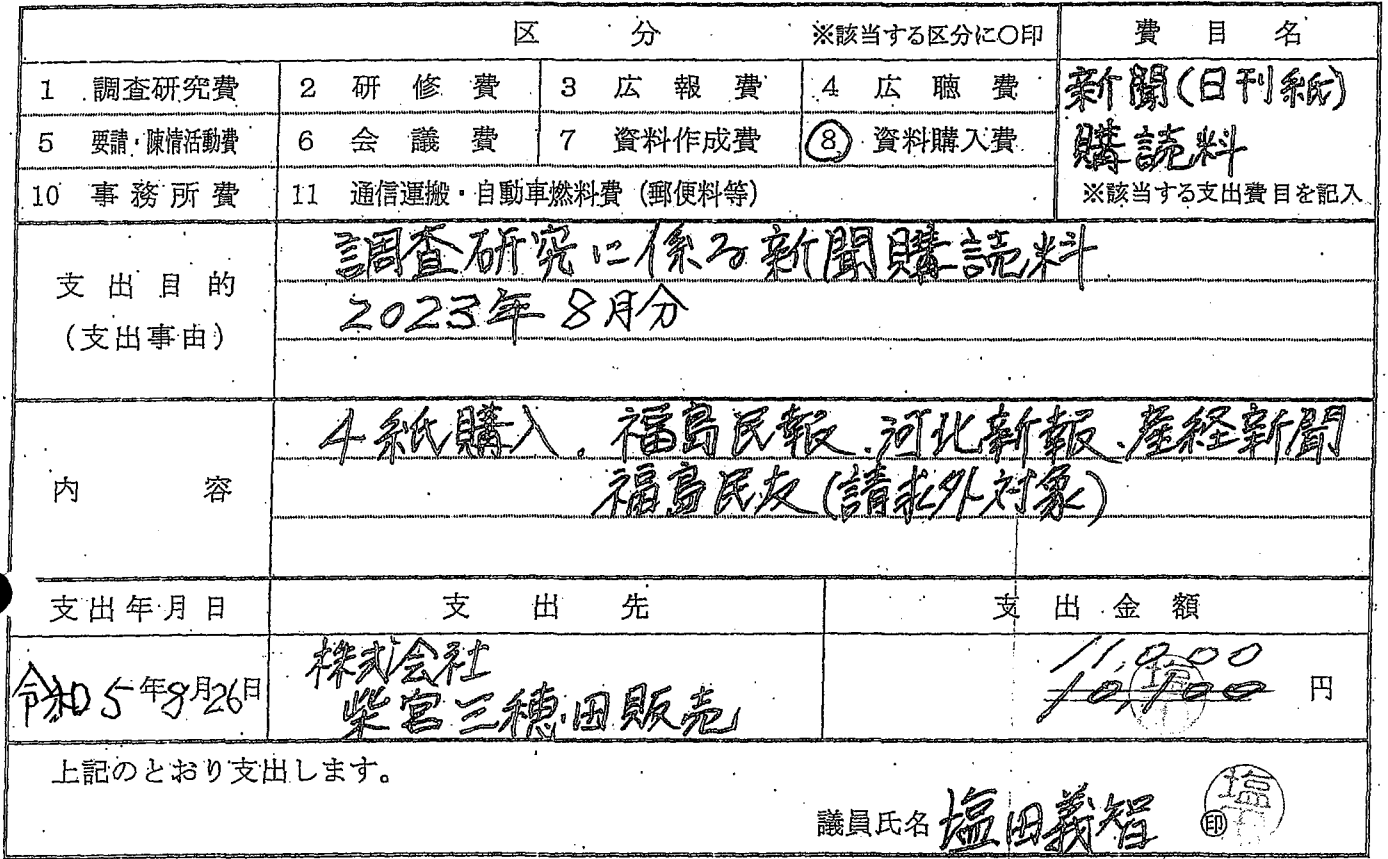 区 分 ※該当する区分に○印
費 目 名
1 調査研究費 2 研 修 費 3 広 報 費 4 広 聴 費
新聞(日刊紙)
5 要請・陳情活動費 6 会 議 費 7 資料作成費 8 資料購入費
購読料
10 事 務 所 費 11 通信運搬・自動車燃料費 (郵便料等)
※該当する支出費目を記入
支 出 目 的
(支出事由)
調査研究に係る新聞購読料
2023年 8月分
内 容
4紙購入、福島民報、河北新報、産経新聞
福島民友(請求外対象)
支出年月日 支 出 先 支 出 金 額
令和5年8月26日
株式会社
柴宮三穂田販売
11,000
10,100 円
上記のとおり支出します。
議員氏名 塩田義智 印
塩田